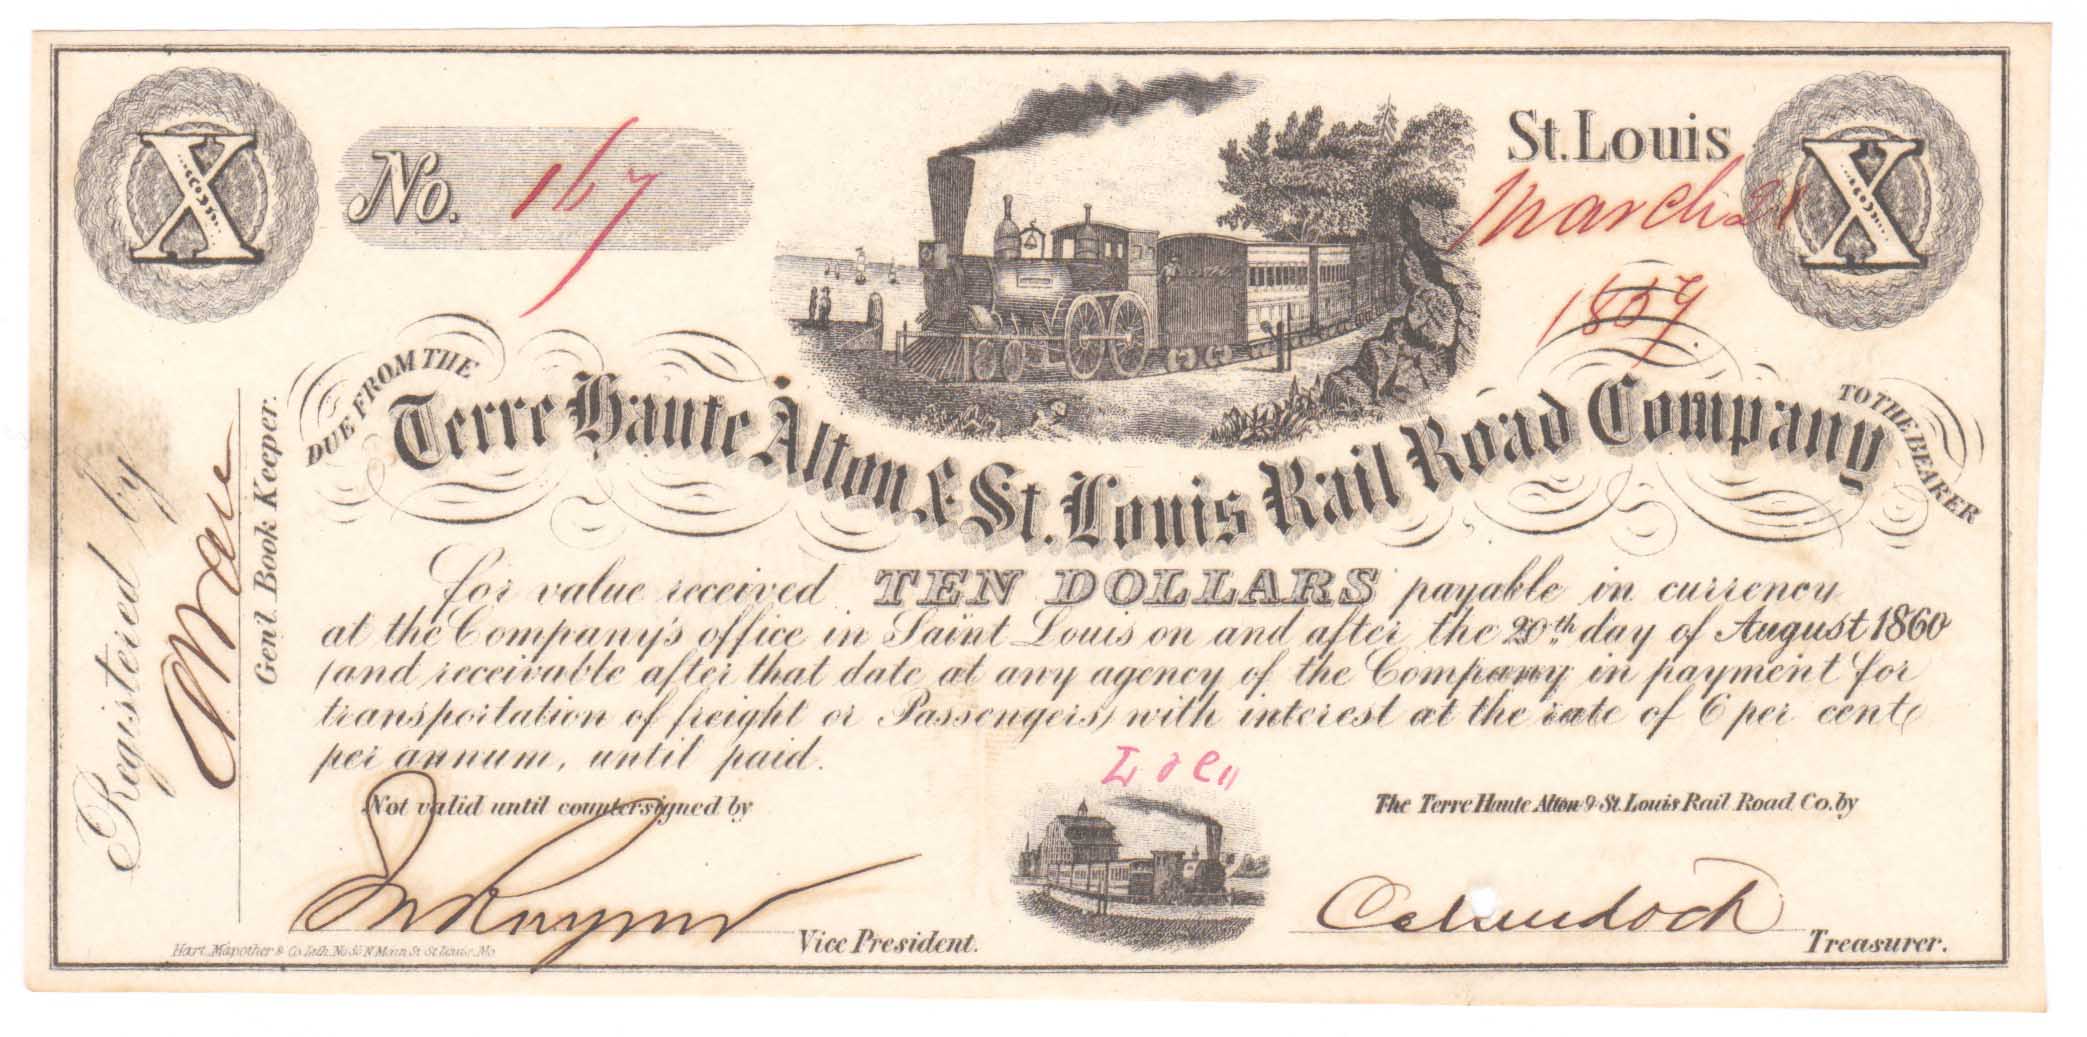 X
No. 167
St. Louis
March 21
1857
X
DUE FROM THE
Terre Haute Alton & St. Louis Rail Road Company
TO THE BEARER
for value received TEN DOLLARS payable in currency
at the Company's office in Saint Louis on and after the 20th day of August 1860
(and receivable after that date at any agency of the Company in payment for
transportation of freight or Passengers) with interest at the rate of 6 per cent
per annum, until paid.
Registered by
Gen'l. Book Keeper.
Not valid until countersigned by
Vice President.
The Terre Haute Alton & St. Louis Rail Road Co. by
Treasurer.
Hart, Mapother & Co. Lith. No. N. Main St. St. Louis, Mo